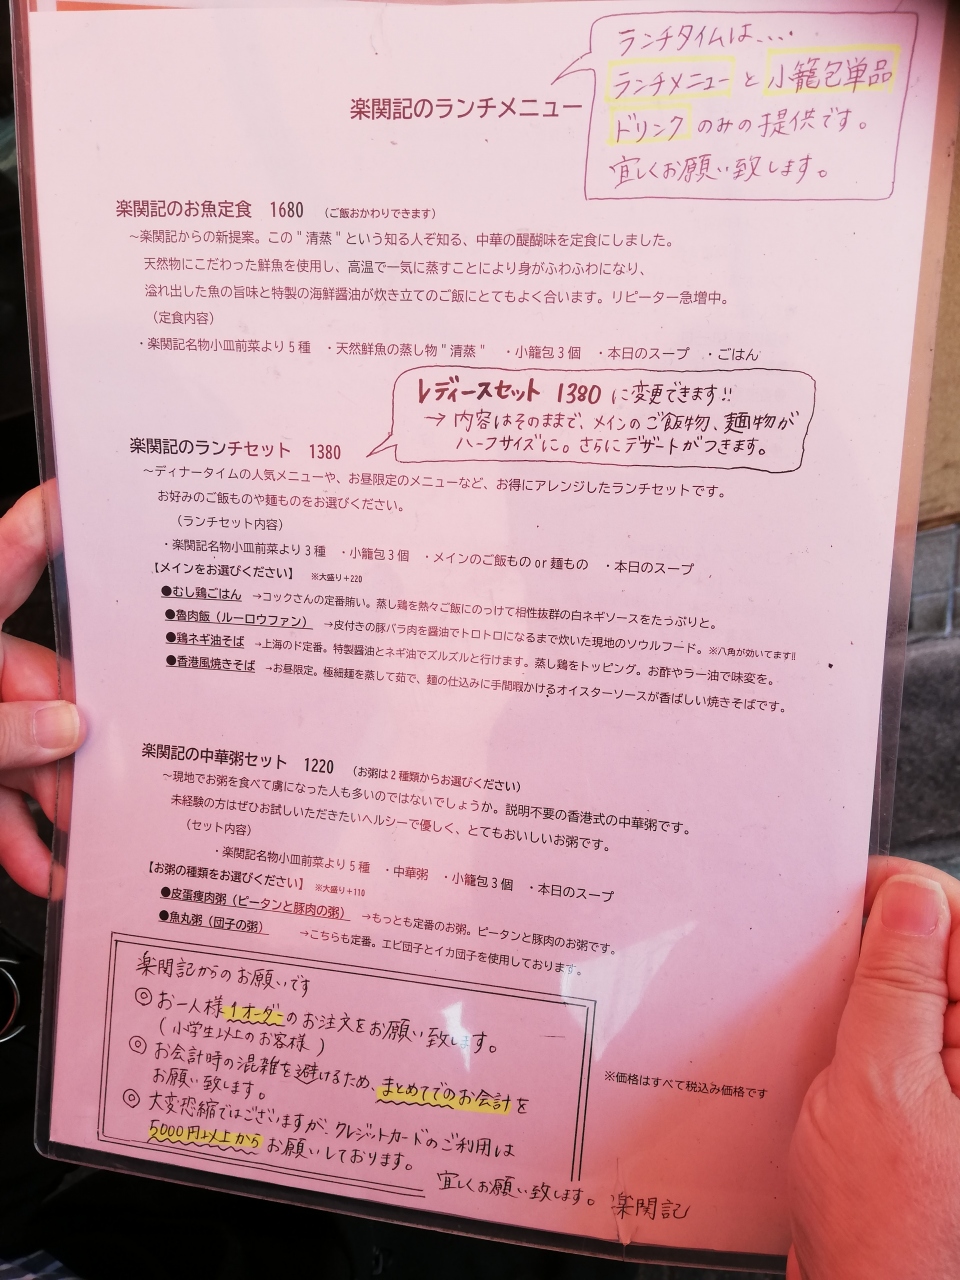 ランチタイムは....
ランチメニューと小籠包単品
ドリンクのみの提供です。
宜しくお願い致します。
楽関記のランチメニュー
楽関記のお魚定食 1680 （ご飯おかわりできます）
～楽関記からの新提案。この"清蒸"という知る人ぞ知る、中華の醍醐味を定食にしました。
天然物にこだわった鮮魚を使用し、高温で一気に蒸すことにより身がふわふわになり、
溢れ出した魚の旨味と特製の海鮮醤油が炊き立てのご飯にとてもよく合います。リピーター急増中。
（定食内容）
・楽関記名物小皿前菜より5種 ・天然鮮魚の蒸し物"清蒸" ・小籠包3個 ・本日のスープ ・ごはん
レディースセット 1380 に変更できます!!
→ 内容はそのままで、メインのご飯物、麺物が
ハーフサイズに。さらにデザートがつきます。
楽関記のランチセット 1380
～ディナータイムの人気メニューや、お昼限定のメニューなど、お得にアレンジしたランチセットです。
お好みのご飯ものや麺ものをお選びください。
（ランチセット内容）
・楽関記名物小皿前菜より3種 ・小籠包3個 ・メインのご飯もの or 麺もの ・本日のスープ
【メインをお選びください】 ※大盛り+220
●むし鶏ごはん →コックさんの定番賄い。蒸し鶏を熱々ご飯にのっけて相性抜群の白ネギソースをたっぷりと。
●魯肉飯（ルーロウファン） →皮付きの豚バラ肉を醤油でトロトロになるまで炊いた現地のソウルフード。※八角が効いてます!!
●鶏ネギ油そば →上海のド定番。特製醤油とネギ油でズルズルと行けます。蒸し鶏をトッピング。お酢やラー油で味変を。
●香港風焼きそば →お昼限定。極細麺を蒸して茹で、麺の仕込みに手間暇かけるオイスターソースが香ばしい焼きそばです。
楽関記の中華粥セット 1220 （お粥は2種類からお選びください）
～現地でお粥を食べて虜になった人も多いのではないでしょうか。説明不要の香港式の中華粥です。
未経験の方はぜひお試しいただきたいヘルシーで優しく、とてもおいしいお粥です。
（セット内容）
・楽関記名物小皿前菜より5種 ・中華粥 ・小籠包3個 ・本日のスープ
【お粥の種類をお選びください】 ※大盛り+110
●皮蛋痩肉粥（ピータンと豚肉の粥） →もっとも定番のお粥。ピータンと豚肉のお粥です。
●魚丸粥（団子の粥） →こちらも定番。エビ団子とイカ団子を使用しております。
楽関記からのお願いです
◎ お一人様1オーダーのお注文をお願い致します。
（小学生以上のお客様）
◎ お会計時の混雑を避けるため、まとめてでのお会計を
お願い致します。
◎ 大変恐縮ではございますが、クレジットカードのご利用は
5000円以上からお願いしております。
宜しくお願い致します。 楽関記
※価格はすべて税込み価格です